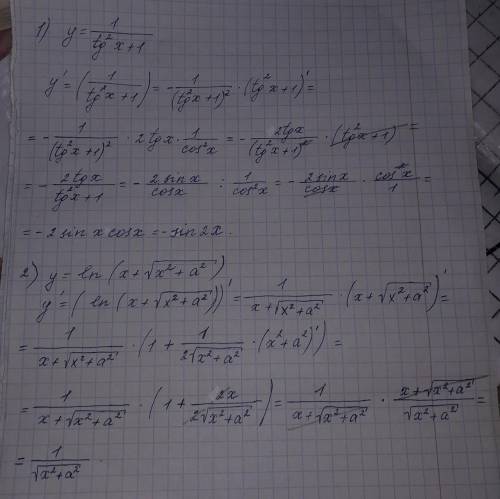 1) y = 1/(tg²x+1)
y' = (1/(tg²x+1)) = -1/(tg²x+1)² · (tg²x+1)' =
= -1/(tg²x+1)² · 2tgx · 1/cos²x = -2tgx/(tg²x+1)² · (tg²x+1) =
= -2tgx/(tg²x+1) = -2sinx/cosx : 1/cos²x = -2sinx/cosx · cos²x/1 =
= -2sinxcosx = -sin2x.
2) y = ln(x+√(x²+a²))
y' = (ln(x+√(x²+a²)))' = 1/(x+√(x²+a²)) · (x+√(x²+a²))' =
= 1/(x+√(x²+a²)) · (1 + 1/(2√(x²+a²)) · (x²+a²)') =
= 1/(x+√(x²+a²)) · (1 + 2x/(2√(x²+a²))) = 1/(x+√(x²+a²)) · (x+√(x²+a²))/√(x²+a²) =
= 1/√(x²+a²)